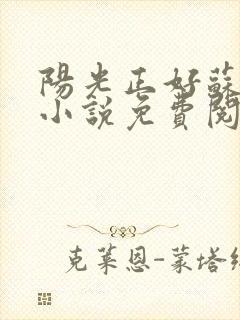 陽光正好蘇
小說免費閱
克萊恩-蒙塔